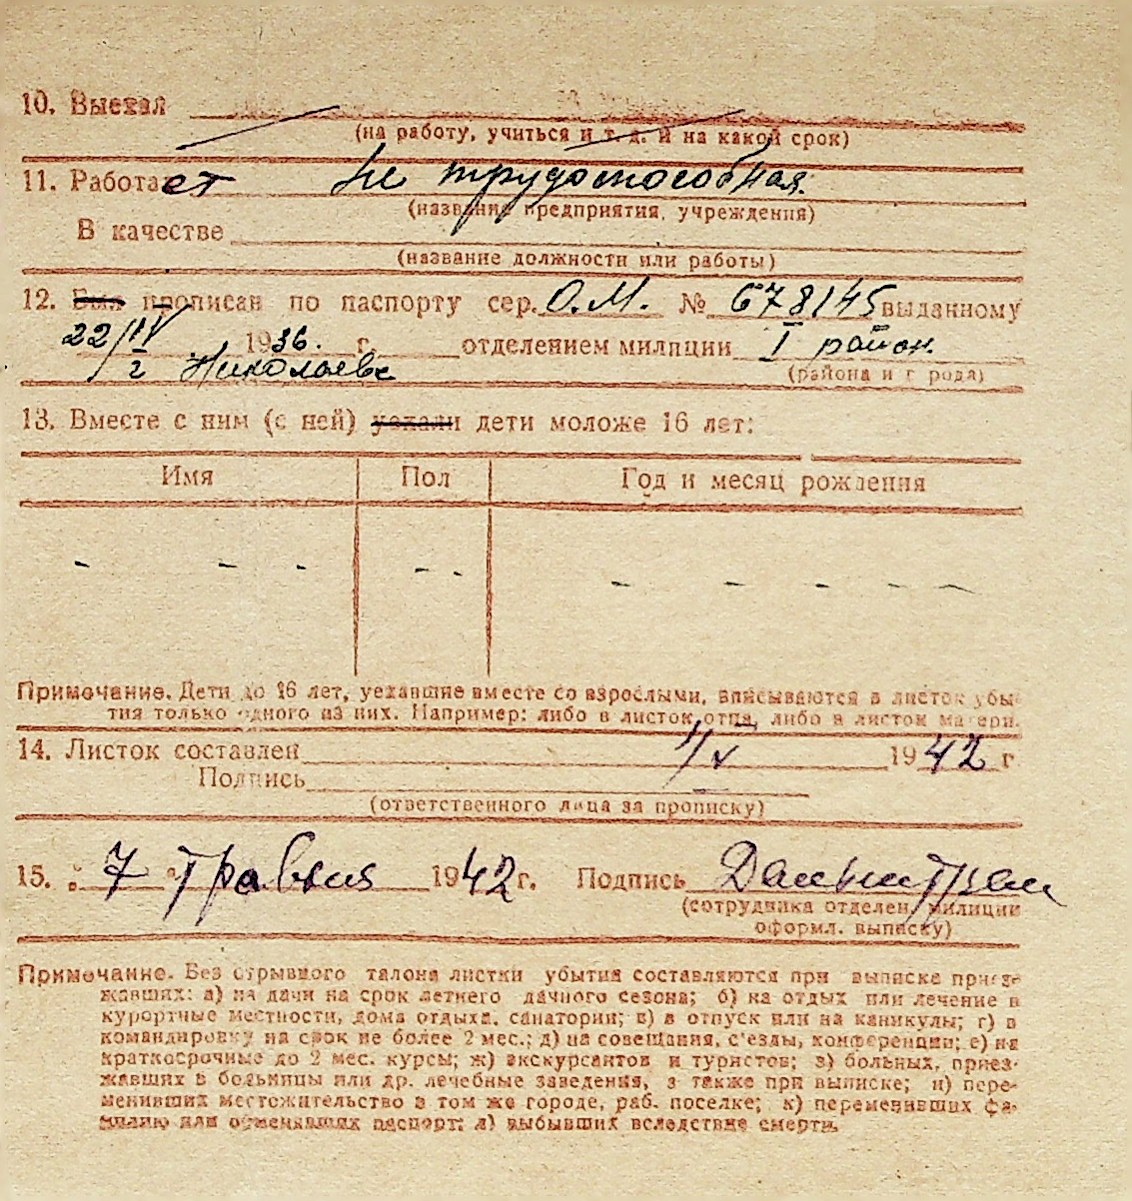 10. Выехал
(на работу, учиться и т. д. и на какой срок)
11. Работает не трудоспособная.
(название предприятия, учреждения)
В качестве
(название должности или работы)
12. Был прописан по паспорту сер. О.М. № 678145 выданному
22/IV 1936. г. отделением милиции I район.
г Николаеве (района и города)
13. Вместе с ним (с ней) уехали дети моложе 16 лет:
Имя Пол Год и месяц рождения
- - - - - - - - - -
Примечание. Дети до 16 лет, уехавшие вместе со взрослыми, вписываются в листок убы-
тия только одного из них. Например: либо в листок отца, либо в листок матери.
14. Листок составлен 1/V 1942 г
Подпись
(ответственного лица за прописку)
15. " 7 " Травня 1942 г. Подпись
(сотрудника отделен. милиции
оформл. выписку)
Примечание. Без отрывного талона листки убытия составляются при выписке приез-
жавших: а) на дачи на срок летнего дачного сезона; б) на отдых или лечение в
курортные местности, дома отдыха, санатории; в) в отпуск или на каникулы; г) в
командировку на срок не более 2 мес.; д) на совещания, с'езды, конференции; е) на
краткосрочные до 2 мес. курсы; ж) экскурсантов и туристов; з) больных, приез-
жавших в больницы или др. лечебные заведения, а также при выписке; и) пере-
менивших местожительство в том же городе, раб. поселке; к) переменивших фа-
милию или обменявших паспорт; л) выбывших вследствие смерти.